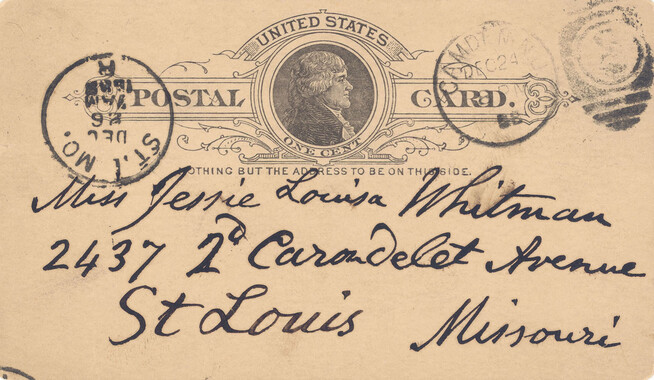 UNITED STATES
POSTAL CARD.
ONE CENT
NOTHING BUT THE ADDRESS TO BE ON THIS SIDE.
CAMD N.J.
DEC 24
88
ST. L MO.
DEC
26
7 AM
1888
A
Miss Jessie Louisa Whitman
2437 2d Carondelet Avenue
St Louis Missouri